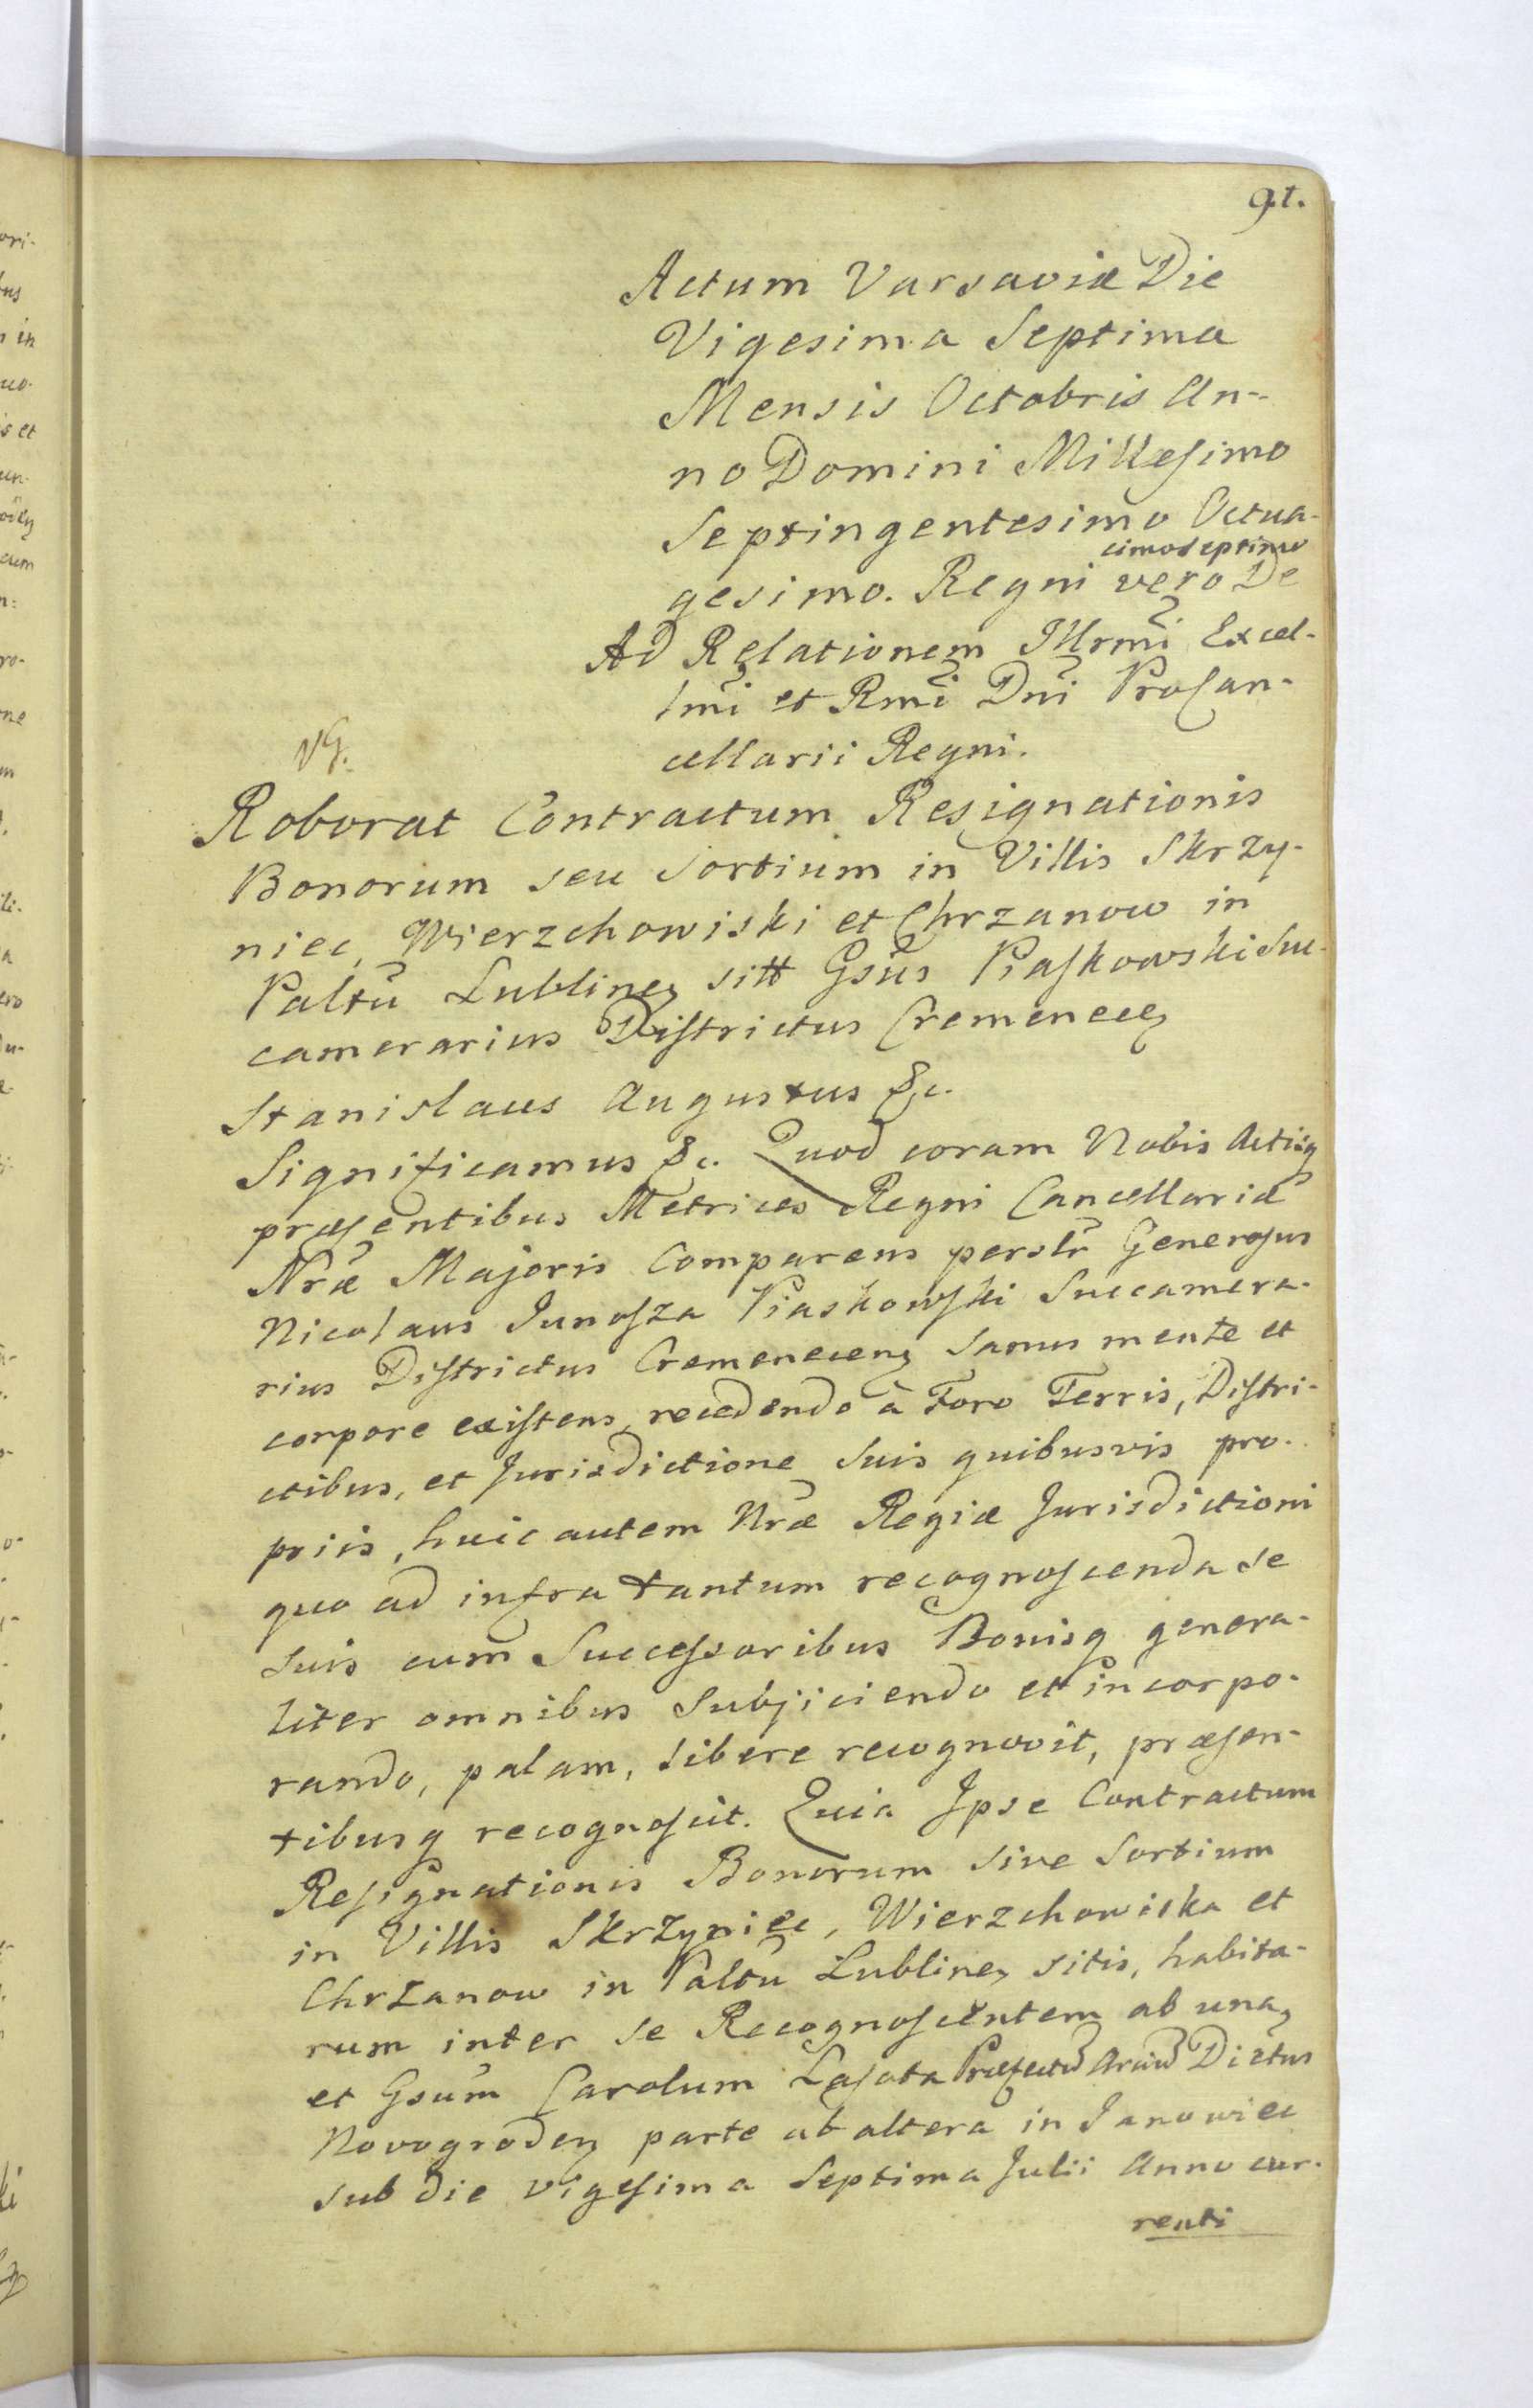 91.
Actum Varsaviæ Die
Vigesima Septima
Mensis Octobris An-
no Domini Millesimo
Septingentesimo Octua-
gesimo. Regni vero De
cimoseptimo
Ad Relationem Illrmi Excel-
lmi et Rmi Dni ProCan-
cellarii Regni.
Roborat Contractum Resignationis
Bonorum seu Sortium in Villis Skrzy-
niec, Wierzchowiski et Chrzanow in
Paltu Lublinen sitt Gsus Piaskowski Suc-
camerarius Districtus Cremenecen
Stanislaus Augustus &c.
Significamus &c. Quod coram Nobis Actisq
præsentibus Metrices Regni Cancellariæ
Nræ Majoris Comparens personlr Generosus
Nicolaus Junosza Piaskowski Succamera-
rius Districtus Cremenecen Sanus mente et
corpore existens, recedendo à Foro Terris, Distri-
ctibus, et Jurisdictione Suis quibusvis pro-
priis, huic autem Nræ Regiæ Jurisdictioni
quo ad infra tantum recognoscenda se
suis cum Successoribus Bonisq genera-
liter omnibus Subjiciendo et incorpo-
rando, palam, libere recognovit, præsen-
tibusq recognoscit. Quia Ipse Contractum
Resignationis Bonorum sive Sortium
in Villis Skrzyniec, Wierzchowiska et
Chrzanow in Paltu Lublinen sitis, habita-
rum inter se Recognoscentem ab una,
et Gsum Carolum Lasota Præfectu Arciu Dictus
Novogroden parte ab altera in Janowiec
sub die vigesima Septima Julii Anno cur-
renti